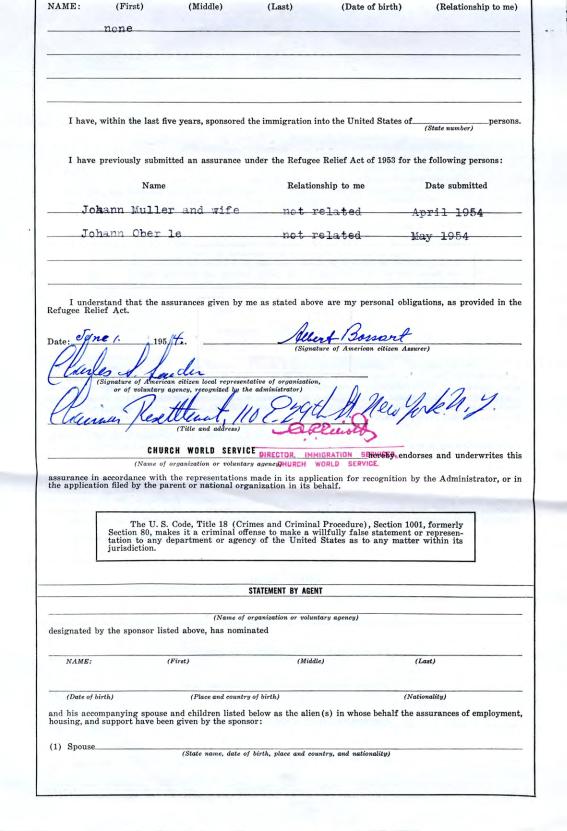 NAME: (First) (Middle) (Last) (Date of birth) (Relationship to me)
none
I have, within the last five years, sponsored the immigration into the United States of persons.
(State number)
I have previously submitted an assurance under the Refugee Relief Act of 1953 for the following persons:
Name Relationship to me Date submitted
Johann Muller and wife not related April 1954
Johann Ober le not related May 1954
I understand that the assurances given by me as stated above are my personal obligations, as provided in the
Refugee Relief Act.
Date: June 1, 1954. Albert Bossart
(Signature of American citizen Assurer)
Charles S.
(Signature of American citizen local representative of organization,
or of voluntary agency, recognized by the administrator)
Chairman Resettlement, 110 E. 29th St, New York N.Y.
(Title and address)
CHURCH WORLD SERVICE DIRECTOR, IMMIGRATION SERVICES, hereby endorses and underwrites this
(Name of organization or voluntary agency) CHURCH WORLD SERVICE.
assurance in accordance with the representations made in its application for recognition by the Administrator, or in
the application filed by the parent or national organization in its behalf.
The U. S. Code, Title 18 (Crimes and Criminal Procedure), Section 1001, formerly
Section 80, makes it a criminal offense to make a willfully false statement or represen-
tation to any department or agency of the United States as to any matter within its
jurisdiction.
STATEMENT BY AGENT
(Name of organization or voluntary agency)
designated by the sponsor listed above, has nominated
NAME: (First) (Middle) (Last)
(Date of birth) (Place and country of birth) (Nationality)
and his accompanying spouse and children listed below as the alien(s) in whose behalf the assurances of employment,
housing, and support have been given by the sponsor:
(1) Spouse
(State name, date of birth, place and country, and nationality)